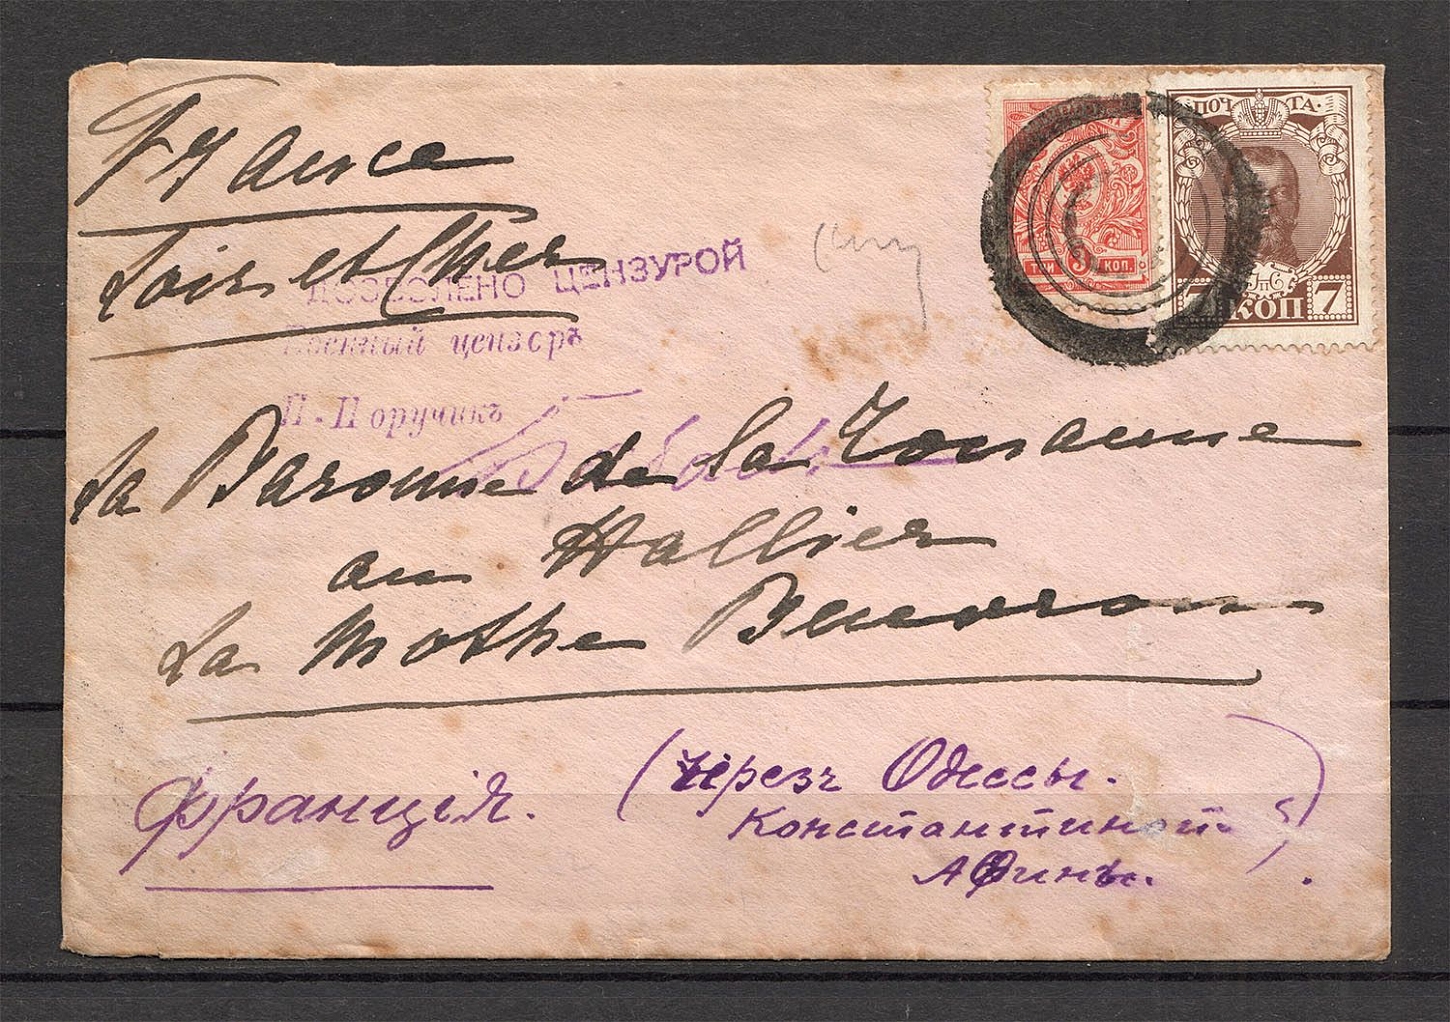 France
Loir et Cher
ДОЗВОЛЕНО ЦЕНЗУРОЙ
Военный цензоръ
П-Поручикъ
ПОЧТА.
ТРИ 3 КОП.
7 КОП 7
La Baronne de la
au Hallier
La Mothe Beuvron
Франція.
(Черезъ Одессы.
Константиноп
Афины.)